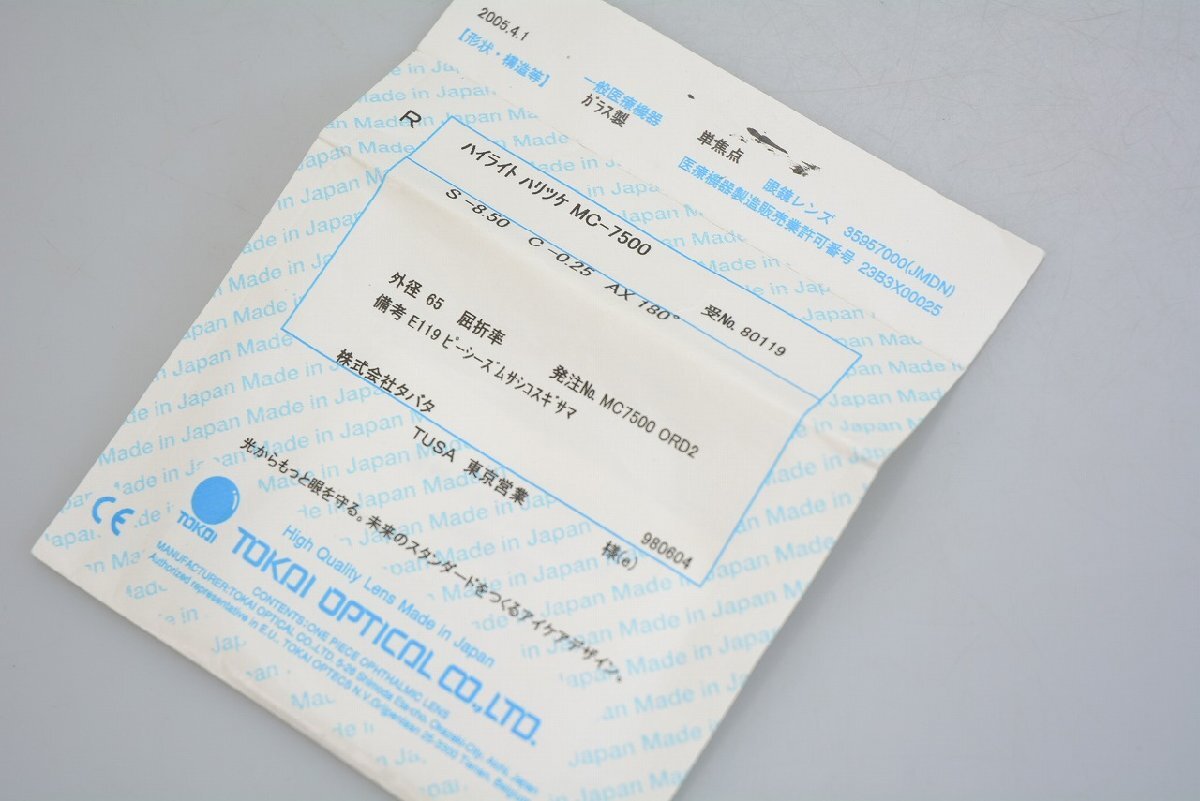 2005.4.1
【形状・構造等】
一般医療機器
ガラス製
単焦点
眼鏡レンズ 35957000(JMDN)
医療機器製造販売業許可番号 23B3X00025
R
ハイライト ハリツケ MC-7500
受No. 80119
S -8.50 C -0.25 AX 180°
外径 65 屈折率
発注No. MC7500 ORD2
備考 E119 ピーシーズムサシコスギサマ
株式会社タバタ
TUSA 東京営業
様(e)
980604
光からもっと眼を守る。未来のスタンダードをつくるアイケアデザイン。
CE
TOKAI
High Quality Lens Made in Japan
TOKAI OPTICAL CO., LTD.
CONTENTS:ONE PIECE OPHTHALMIC LENS
MANUFACTURER:TOKAI OPTICAL CO.,LTD. 5-26 Shimoda Eta-cho, Okazaki-City, Aichi, Japan
Authorized representative in E.U., TOKAI OPTECS N.V.
Made in Japan